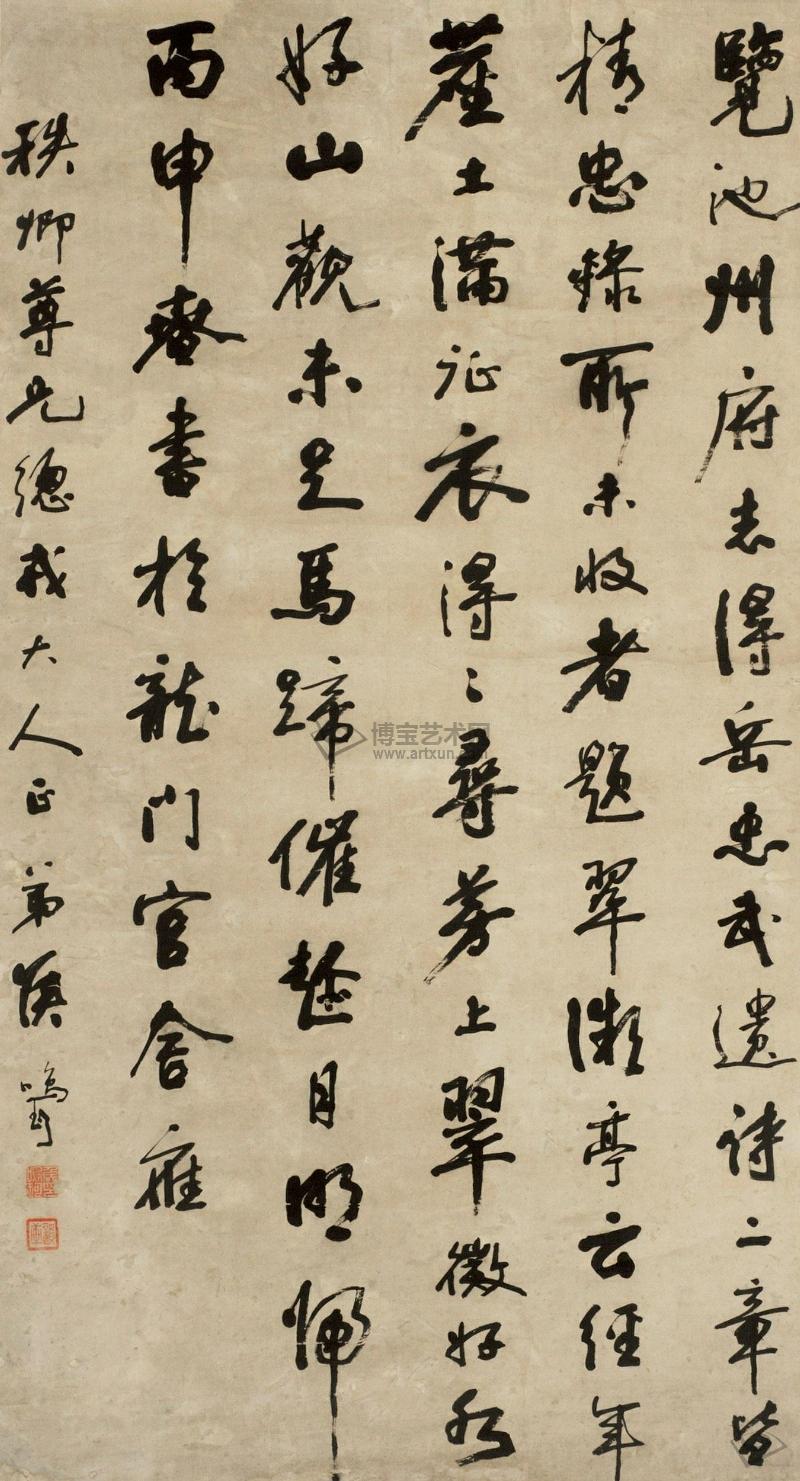 覽池州府志得岳忠武遺詩二章皆
精忠錄所未收者題翠微亭云經年
塵土滿征衣得々尋芳上翠微好水
好山觀未足馬蹄催趁月明歸
丙申春書於龍門官舍應
秩卿尊兄總戎大人正弟鳴珂
博宝艺术网
www.artxun